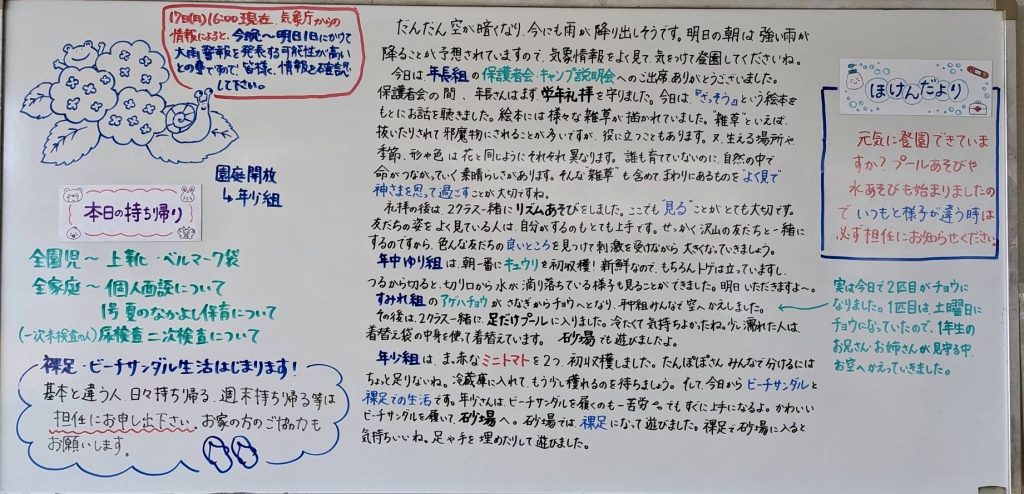 17日(月)16:00現在、気象庁からの
情報によると、今晩〜明日1日にかけて
大雨警報を発表する可能性が高い
との事ですので、皆様、情報を確認
して下さい。
園庭開放
↳年少組
本日の持ち帰り
全園児〜上靴・ベルマーク袋
全家庭〜個人面談について
1号夏のなかよし保育について
(一次未検査の人)尿検査二次検査について
裸足・ビーチサンダル生活はじまります!
基本と違う人、日々持ち帰る、週末持ち帰る等は
担任にお申し出下さい。お家の方のご協力も
お願いします。
だんだん空が暗くなり、今にも雨が降り出しそうです。明日の朝は強い雨が
降ることが予想されていますので、気象情報をよく見て、気をつけて登園してくださいね。
今日は年長組の保護者会・キャンプ説明会へのご出席ありがとうございました。
保護者会の間、年長さんはまず学年礼拝を守りました。今日は、『ざっそう』という絵本を
もとにお話を聴きました。絵本には様々な雑草が描かれていました。"雑草"といえば、
抜いたりされて邪魔物にされることが多いですが、役に立つこともあります。又、生える場所や
季節、形や色は花と同じようにそれぞれ異なります。誰も育てていないのに、自然の中で
命がつながっていく素晴らしさがあります。そんな"雑草"も含めて、まわりにあるものを"よく見て"
神さまを思って過ごすことが大切ですね。
礼拝の後は、2クラス一緒にリズムあそびをしました。ここでも"見る"ことがとても大切です。
友だちの姿をよく見ている人は、自分がするのもとても上手です。せっかく沢山の友だちと一緒に
するのですから、色んな友だちの良いところを見つけて刺激を受けながら大きくなっていきましょう。
年中ゆり組は、朝一番にキュウリを初収穫!新鮮なので、もちろんトゲは立っていますし、
つるから切ると、切り口から水が滴り落ちている様子も見ることができました。明日いただきますよ〜。
すみれ組のアゲハチョウがさなぎからチョウへとなり、みんなで空へかえしました。
その後は、2クラス一緒に、足だけプールに入りました。冷たくて気持ちよかったね。少し濡れた人は、
着替え袋の中身を使って着替えています。砂場でも遊びましたよ。
年少組は、ま、赤なミニトマトを2つ、初収穫しました。たんぽぽさんみんなで分けるには
ちょっと足りないね。冷蔵庫に入れて、もう少し穫れるのを待ちましょう。そして、今日からビーチサンダルと
裸足での生活です。年少さんは、ビーチサンダルを履くのも一苦労〜。でもすぐに上手になるよ。かわいい
ビーチサンダルを履いて、砂場へ。砂場では、裸足になって遊びました。裸足で砂場に入ると
気持ちいいね。足や手を埋めたりして遊びました。
ほけんだより
元気に登園できていま
すか?プールあそびや
水あそびも始まりましたの
で、いつもと様子が違う時は
必ず担任にお知らせください。
実は今日で2匹目がチョウに
なりました。1匹目は土曜日に
チョウになっていたので、1年生の
お兄さん・お姉さんが見守る中、
お空へかえっていきました。